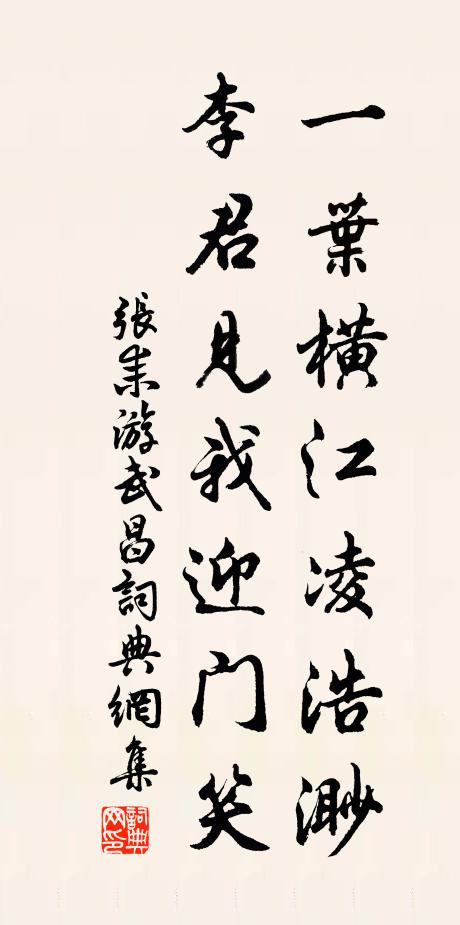 一葉橫江凌浩渺
李君見我迎門笑
張耒游武昌詞典網集
詞典
网印